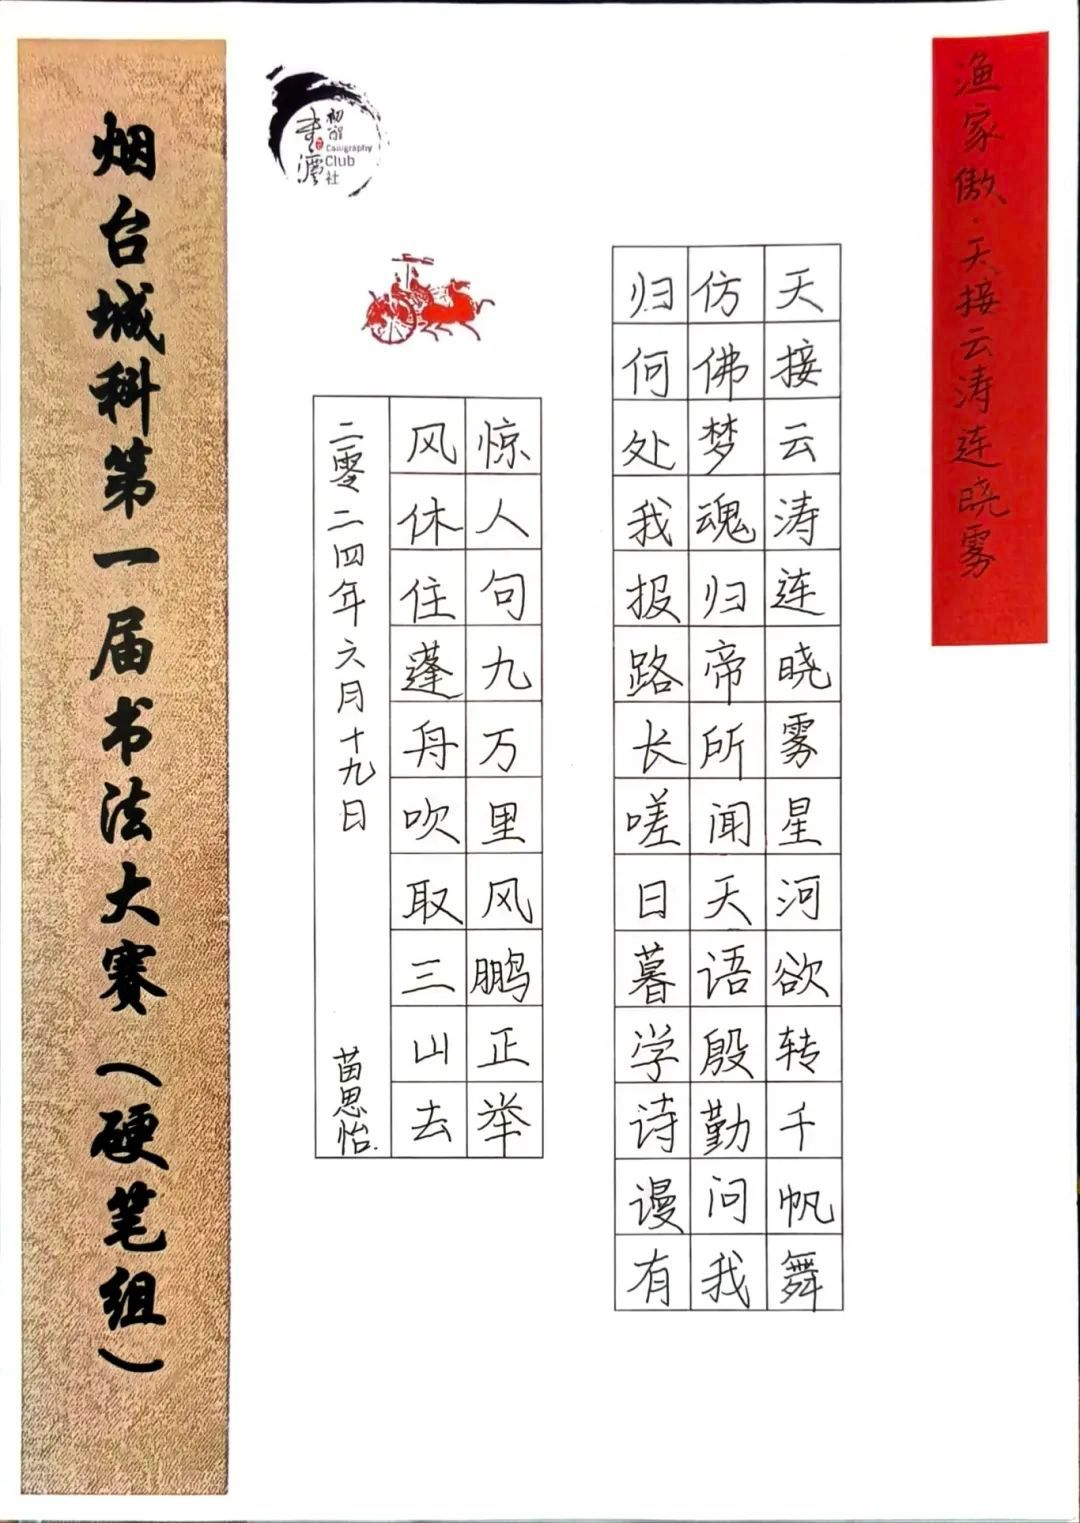 渔家傲·天接云涛连晓雾
天接云涛连晓雾星河欲转千帆舞
仿佛梦魂归帝所闻天语殷勤问我
归何处我报路长嗟日暮学诗谩有
惊人句九万里风鹏正举
风休住蓬舟吹取三山去
二零二四年六月十九日 苗思怡.
Calligraphy
Club
社
烟台城科第一届书法大赛（硬笔组）